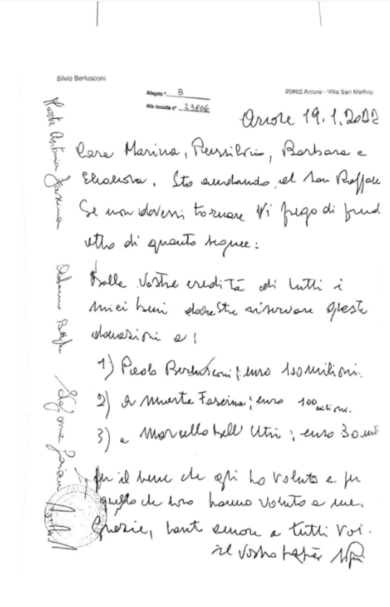 Silvio Berlusconi
20862 Arcore - Villa San Martino
Allegato " B
Alla raccolta n° 23806
Arcore 19.1.2022
Cara Marina, Piersilvio, Barbara e
Eleonora, Sto andando al San Raffaele
Se non dovessi tornare Vi prego di prend
atto di quanto segue:
Dalle vostre eredità di tutti i
miei beni dovreste riservare queste
donazioni a:
1) Paolo Berlusconi; euro 100 milioni.
2) a Marta Fascina; euro 100 milioni.
3) a Marcello Dell'Utri; euro 30 mil
per il bene che gli ho voluto e per
quello che loro hanno voluto a me.
Grazie, tanto amore a tutti voi.
il vostro papà
Marta Antonia Fascina